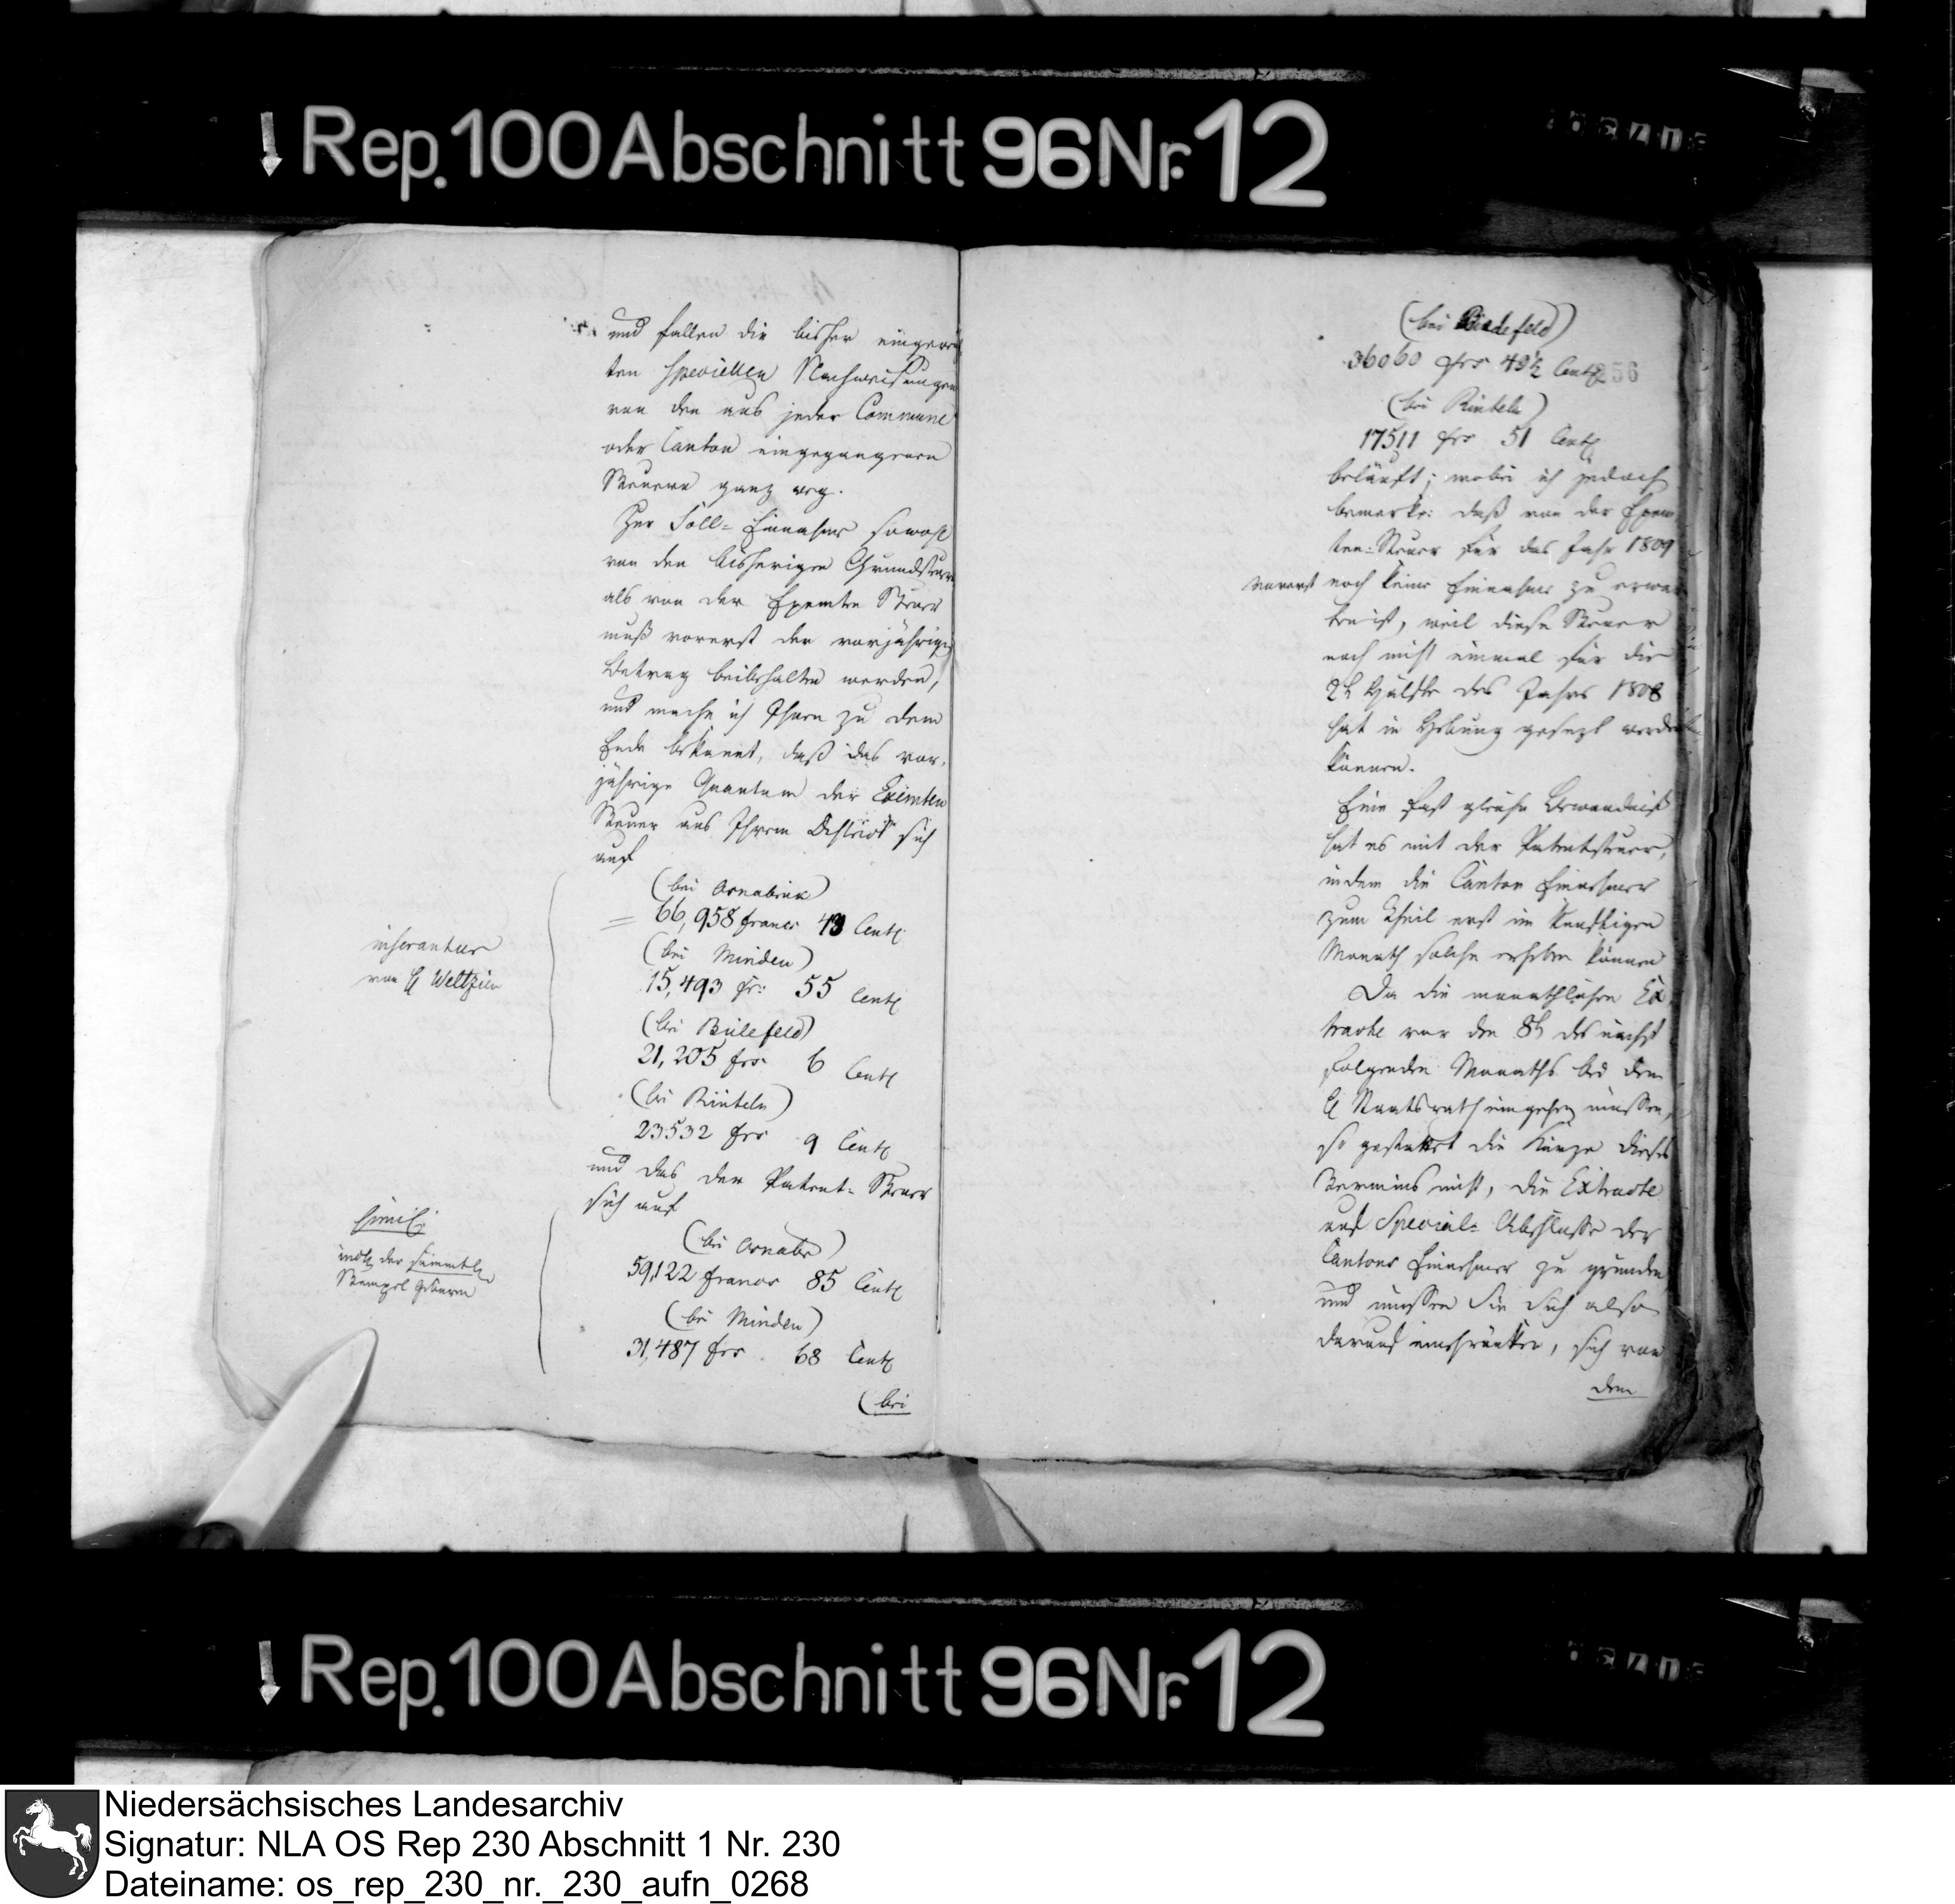 Rep. 100 Abschnitt 96 Nr. 12
und fallen die bisher eingereich
ten speciellen Nachweisungen
von den aus jeder Commune
oder Canton eingegangenen
Steuern ganz weg.
Zur Soll-Einnahme sowohl
von den bisherigen Grundsteuern
als von der Exemten Steuer
muß vorerst der vorjährige
Betrag beibehalten werden,
und mache ich Ihnen zu dem
Ende bekannt, daß das vor-
jährige Quantum der Eximten
Steuer aus Ihrem District sich
auf
(bei Osnabrück)
66,958 francs 43 Cent
(bei Minden)
15,493 fr: 55 Cent
(bei Bielefeld)
21,205 frs. 6 Cent
(bei Rinteln)
23532 frs 9 Cent
und das der Patent-Steuer
sich auf
(bei Osnabr)
59,122 francs 85 Cent
(bei Minden)
31,487 frs. 68 Cent
(bei
inserantur
von H Weltzien
simil:
der sämmtl
Stempel
(bei Bielefeld)
36060 frs 49½ Cent
256
(bei Rinteln)
17511 frs 51 Cent
beläuft; wobei ich jedoch
bemerke: daß von der Exem
ten-Steuer für das Jahr 1809
vorerst noch keine Einnahme zu erwar
ten ist, weil diese Steuer
noch nicht einmal für die
2te Hälfte des Jahrs 1808
hat in Hebung gesezt werden
können.
Eine fast gleiche Bewandniß
hat es mit der Patentsteuer,
indem die Canton Einnehmer
zum Theil erst im künftigen
Monath solche erheben können
Da die monathlichen Ex
tracte vor den 8t des nächst
folgenden Monaths bei dem
H Staatsrath eingehen müssen,
so gestattet die Kürze dieses
Termins nicht, die Extracte
auf Special-Abschlüsse der
Cantons Einnehmer zu gründen
und müssen Sie sich also
darauf einschränken, sich von
dem
Rep. 100 Abschnitt 96 Nr. 12
Niedersächsisches Landesarchiv
Signatur: NLA OS Rep 230 Abschnitt 1 Nr. 230
Dateiname: os_rep_230_nr._230_aufn_0268